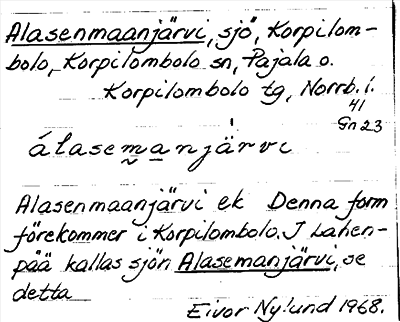 Alasenmaanjärvi, sjö, Korpilom-
bolo, Korpilombolo sn, Pajala o.
Korpilombolo tg, Norrb. l.
41
Gn 23
álasemanjärvi
Alasenmaanjärvi ek Denna form
förekommer i Korpilombolo. I Lahen-
pää kallas sjön Alasemanjärvi, se
detta
Eivor Nylund 1968.